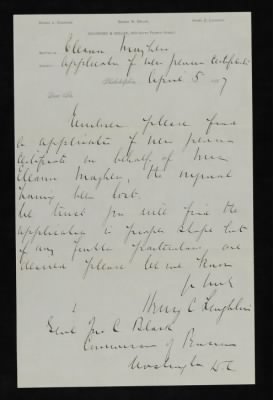 Eleanor Maghen
Application of new pension Certificate
Philadelphia, April 5, 1887
Dear Sir,
Enclosed please find
an application of new pension
certificate on behalf of Mrs
Eleanor Maghen, the original
having been lost.
We trust you will find the
application in proper shape but
if any further particulars are
desired please let me know
Yr truly
Henry C Loughlin
Genl Jno C Black
Commissioner of Pensions
Washington D.C.